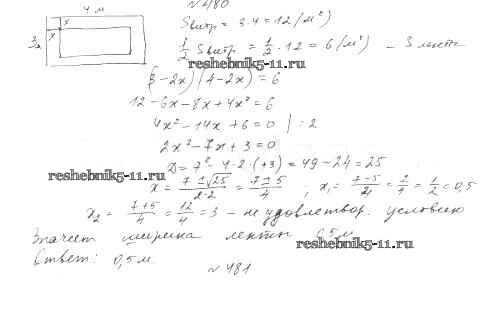 №480
4 м
x
x
3м
Sвитр = 3·4 = 12 (м²)
1/2 Sвитр = 1/2 · 12 = 6 (м²) – S ленты
reshebnik5-11.ru
(3-2x)(4-2x) = 6
12 - 6x - 8x + 4x² = 6
4x² - 14x + 6 = 0 | :2
2x² - 7x + 3 = 0
reshebnik5-11.ru
D = 7² - 4·2·(+3) = 49 - 24 = 25
x = 7±√25 / 2·2 = 7±5 / 4 ; x₁ = 7-5 / 4 = 2/4 = 1/2 = 0,5
x₂ = 7+5 / 4 = 12/4 = 3 – не удовлетвор. условию
Значит ширина ленты 0,5м
reshebnik5-11.ru
Ответ: 0,5 м.
№481